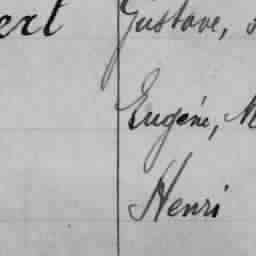 ert Gustave,
Eugène, M
Henri